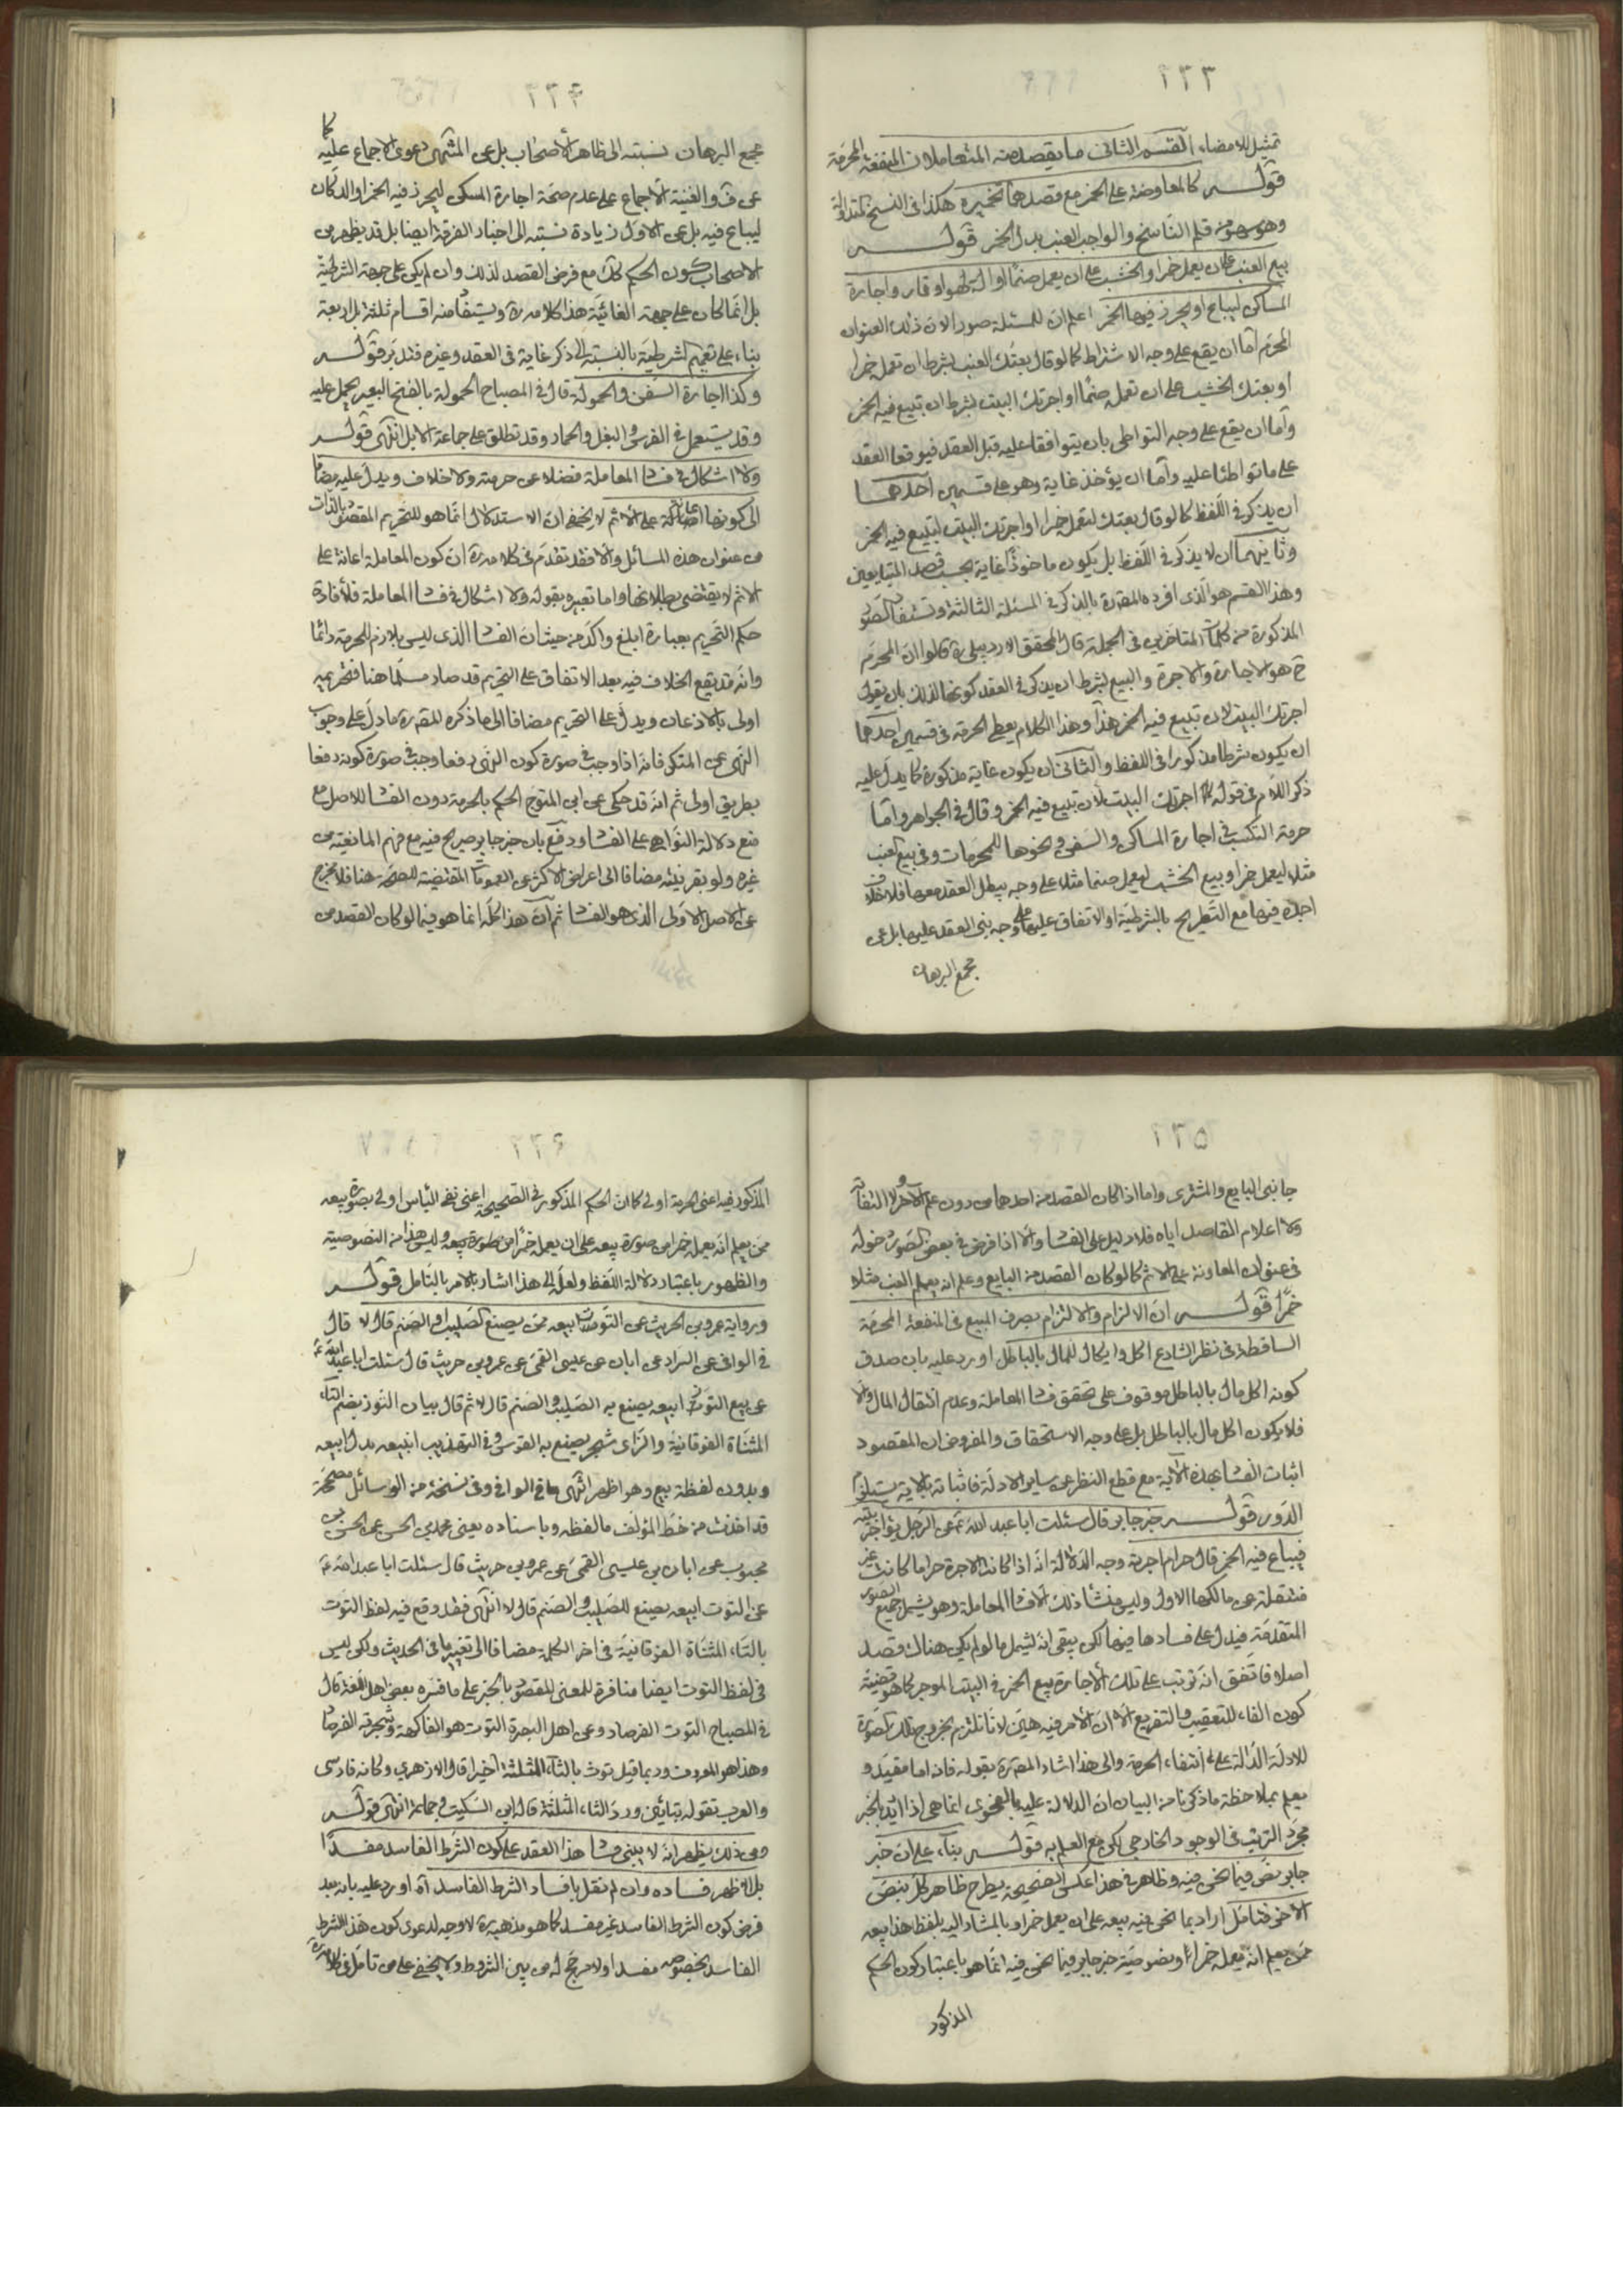 ٢٣٣
تمثيل للامضاء القسم الثانى ما يقصد منه المتعاملان المنفعة المحرمة
قوله كالمعاوضة على الخمر مع قصدهما تخميره هكذا فى النسخ المتداولة
وهو سهو من قلم الناسخ والواجب العنب بدل الخمر قوله
بيع العنب على ان يعمل خمرا والخشب على ان يعمل صنما او الة لهو او قمار واجارة
المساكن ليباع او يحرز فيها الخمر اعلم ان للمسئلة صورا لان ذلك العنوان
المحرم اما ان يقع على وجه الاشتراط كما لو قال بعتك العنب بشرط ان تعمله خمرا
او بعتك الخشب على ان تعمله صنما او اجرتك البيت بشرط ان تبيع فيه الخمر
واما ان يقع على وجه التواطى بان يتوافقا عليه قبل العقد فيوقعا العقد
على ما تواطئا عليه واما ان يؤخذ غاية وهو على قسمين احدهما
ان يذكر فى اللفظ كما لو قال بعتك لتعمل خمرا او اجرتك البيت لتبيع فيه الخمر
وثانيهما ان لا يذكر فى اللفظ بل يكون ماخوذا غاية بحسب قصد المتبايعين
وهذا القسم هو الذى افرده المص ره بالذكر فى المسئلة الثالثة وتستفاد الصور
المذكورة من كلمات المتاخرين فى الجملة قال المحقق الاردبيلى ره قالوا ان المحرم
ح هو الاجارة والاجرة والبيع بشرط ان يذكر فى العقد كونها لذلك بان يقول
اجرتك البيت لان تبيع فيه الخمر هذا وهذا الكلام يعطى الحرمة فى قسمين احدهما
ان يكون شرطا مذكورا فى اللفظ والثانى ان يكون غاية مذكورة كما يدل عليه
ذكر اللام فى قوله اجرتك البيت لان تبيع فيه الخمر وقال فى الجواهر واما
حرمة التكسب فى اجارة المساكن والسفن ونحوها للمحرمات وفى بيع العنب
مثلا ليعمل خمرا وبيع الخشب ليعمل صنما مثلا على وجه يبطل العقد معها فلا خلاف
اجده فيها مع التصريح بالشرطية او الاتفاق عليها على وجه بنى العقد عليها بل عن
مجمع البرهان
٢٣٤
مجمع البرهان نسبته الى ظاهر الاصحاب بل عن المنتهى دعوى الاجماع عليه كما
عن ف والغنية الاجماع على عدم صحة اجارة المسكن ليحرز فيه الخمر او الدكان
ليباع فيه بل عن الاول زيادة نسبته الى اخبار الفرقة ايضا بل قد يظهر من
الاصحاب كون الحكم كك مع فرض القصد لذلك وان لم يكن على جهة الشرطية
بل انما كان على جهة الغائية هذا كلامه ره ويستفاد منه اقسام ثلثة بل اربعة
بناء على تعميم الشرطية بالنسبة الى ذكر غاية فى العقد وغيره فتدبر قوله
وكذا اجارة السفن والحمولة قال فى المصباح الحمولة بالفتح البعير يحمل عليه
وقد يستعمل فى الفرس والبغل والحمار وقد تطلق على جماعة الابل انتهى قوله
ولا اشكال فى فساد المعاملة فضلا عن حرمته ولا خلاف ويدل عليه مضافا
الى كونها اعانة على الاثم لا يخفى ان الاستدلال انما هو للتحريم المقصود بالذات
من عنوان هذه المسائل والا فقد تقدم فى كلامه ره ان كون المعاملة اعانة على
الاثم لا يقتضى بطلانها واما تعبيره بقوله ولا اشكال فى فساد المعاملة فلافادة
حكم التحريم بعبارة ابلغ واكد من حيث ان الفساد الذى ليس بلازم للحرمة دائما
وانه قد يقع الخلاف فيه بعد الاتفاق على التحريم قد صار مسلما هنا فتحريمه
اولى بالاذعان ويدل على التحريم مضافا الى ما ذكره المص ره ما دل على وجوب
النهى عن المنكر فانه اذا وجب فى صورة كون النهى رفعا وجب فى صورة كونه دفعا
بطريق اولى ثم انه قد حكى عن ابن المتوج الحكم بالحرمة دون الفساد للاصل مع
منع دلالة النواهى على الفساد ودفع بان خبر جابر صريح فيه مع فهم المانعية من
غيره ولو بقرينة مضافا الى اعراض الاكثر عن العمومات المقتضية للصحة هنا فلا مخرج
عن الاصل الاولى الذى هو الفساد ثم ان هذا كله انما هو فيما لو كان القصد من
٢٣٥
جانبى البايع والمشترى واما اذا كان القصد من احدهما من دون علم الاخر ولا التفاته
ولا اعلام القاصد اياه فلا دليل على الفساد والا اذا فرض فى بعض الصور دخوله
فى عنوان المعاونة على الاثم كما لو كان القصد من البايع وعلم انه يعمل العنب مثلا
خمرا قوله ان الالزام والالتزام بصرف المبيع فى المنفعة المحرمة
الساقطة فى نظر الشارع اكل وايكال للمال بالباطل اورد عليه بان صدق
كونه اكل مال بالباطل موقوف على تحقق فساد المعاملة وعدم انتقال المال والا
فلا يكون اكل مال بالباطل بل على وجه الاستحقاق والمفروض ان المقصود
اثبات الفساد بهذه الاية مع قطع النظر عن ساير الادلة فاثباته بالاية يستلزم
الدور قوله خبر جابر قال سئلت ابا عبد الله ع عن الرجل يؤاجر بيته
فيباع فيه الخمر قال حرام اجرته وجه الدلالة انه اذا كانت الاجرة حراما كانت غير
منتقلة عن مالكها الاول وليس منشأ ذلك الا فساد المعاملة وهو يشمل جميع الصور
المتقدمة فيدل على فسادها فيها لكن يبقى انه يشمل ما لو لم يكن هناك قصد
اصلا فاتفق انه ترتب على تلك الاجارة بيع الخمر فى البيت الموجر كما هو قضية
كون الفاء للتعقيب والتفريع الا ان الامر فيه هين لانا نلتزم بخروج تلك الصورة
للادلة الدالة على انتفاء الحرمة والى هذا اشار المص ره بقوله فانه اما مقيد و
يعلم بملاحظة ما ذكرنا من البيان ان الدلالة عليه بالفحوى انما هى اذا اريد بالخبر
مجرد الترتب فى الوجود الخارجى لكن مع العلم به قوله بناء على ان خبر
جابر نص فيما نحن فيه وظاهر فى هذا عكس الصحيحة يطرح ظاهر كل بنص
الاخر فتامل اراد بما نحن فيه بيعه على ان يعمل خمرا وبالمشار اليه بلفظ هذا بيعه
ممن يعلم انه يعمله خمرا ونصوصية خبر جابر فيما نحن فيه انما هو باعتبار كون الحكم
المذكور
٢٣٦
المذكور فيه اعنى الحرمة اولى كما ان الحكم المذكور فى الصحيحة اعنى نفى الباس اولى بصورة بيعه
ممن يعلم انه يعمله خمرا من صورة بيعه على ان يعمله خمرا من صورة بيعه وليس هذا من النصوصية
والظهور باعتبار دلالة اللفظ ولعله الى هذا اشار بالامر بالتامل قوله
ورواية عمرو بن الحريث عن التوت ابيعه ممن يصنع الصليب او الصنم قال لا قال
فى الوافى عن السراد عن ابان عن عيسى القمى عن عمرو بن حريث قال سئلت ابا عبد الله ع
عن بيع التوز ابيعه يصنع به الصليب والصنم قال لا ثم قال بيان التوز بضم التاء
المثناة الفوقانية والزاى شجر يصنع به القوس وفى التهذيب ابيعه بدل ابيعه
وبدون لفظة بيع وهو اظهر انتهى ما فى الوافى وفى نسخة من الوسائل مصححة
قد اخذت من خط المؤلف ما لفظه وباسناده يعنى محمد بن الحسن عن الحسن بن
محبوب عن ابان بن عيسى القمى عن عمرو بن حريث قال سئلت ابا عبد الله ع
عن التوت ابيعه يصنع للصليب والصنم قال لا انتهى فقد وقع فيه لفظ التوت
بالتاء المثناة الفوقانية فى اخر الكلمة مضافا الى تغيير ما فى الحديث ولكن ليس
فى لفظ التوت ايضا منافرة للمعنى المقصود بالخبر على ما فسره بعض اهل اللغة قال
فى المصباح التوت الفرصاد وعن اهل البصرة التوت هو الفاكهة وشجرته الفرصاد
وهذا هو المعروف وربما قيل توث بالثاء المثلثة اخيرا قال الازهرى وكانه فارسى
والعرب تقوله بتائين ورد الثاء المثلثة قاله ابن السكيت فى جماعة انتهى قوله
ومن ذلك يظهر انه لا يبنى فساد هذا العقد على كون الشرط الفاسد مفسدا
بل الاظهر فساده وان لم نقل بافساد الشرط الفاسد اه اورد عليه بانه بعد
فرض كون الشرط الفاسد غير مفسد كما هو مذهبه ره لا وجه لدعوى كون هذا الشرط
الفاسد بخصوصه مفسدا ولا مرجح له من بين الشروط ولا يخفى على من تامل فى كلامه ره